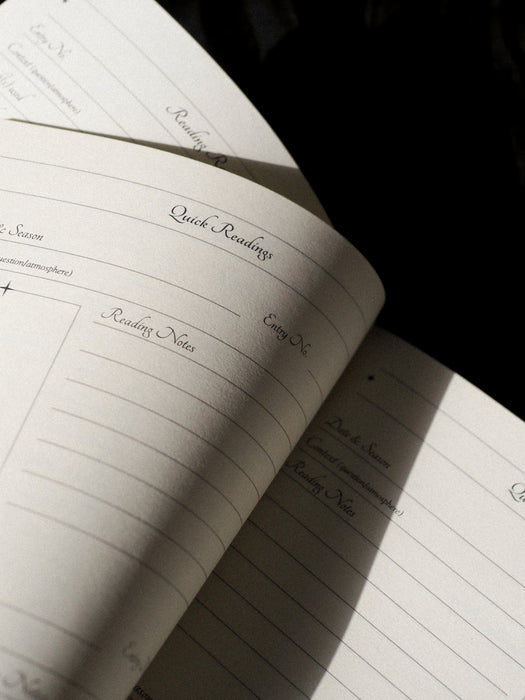 Entry No.
Context (question/atmosphere)
used
Reading
Quick Readings
& Season
question/atmosphere)
Entry No.
Reading Notes
Date & Season
Context (question/atmosphere)
Reading Notes